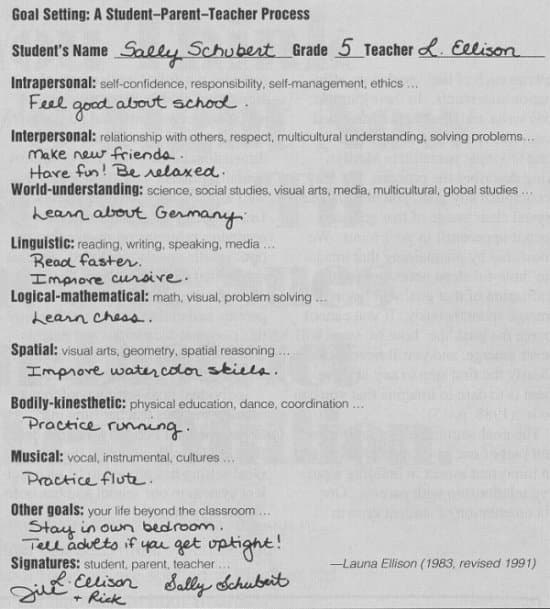 Goal Setting: A Student–Parent–Teacher Process
Student's Name Sally Schubert Grade 5 Teacher L. Ellison
Intrapersonal: self-confidence, responsibility, self-management, ethics ...
Feel good about school.
Interpersonal: relationship with others, respect, multicultural understanding, solving problems...
Make new friends.
Have fun! Be relaxed.
World-understanding: science, social studies, visual arts, media, multicultural, global studies ...
Learn about Germany.
Linguistic: reading, writing, speaking, media ...
Read faster.
Improve cursive.
Logical-mathematical: math, visual, problem solving ...
Learn chess.
Spatial: visual arts, geometry, spatial reasoning ...
Improve watercolor skills.
Bodily-kinesthetic: physical education, dance, coordination ...
Practice running.
Musical: vocal, instrumental, cultures ...
Practice flute.
Other goals: your life beyond the classroom ...
Stay in own bedroom.
Tell adults if you get uptight!
Signatures: student, parent, teacher ... —Launa Ellison (1983, revised 1991)
L. Ellison Sally Schubert
Jill + Rick